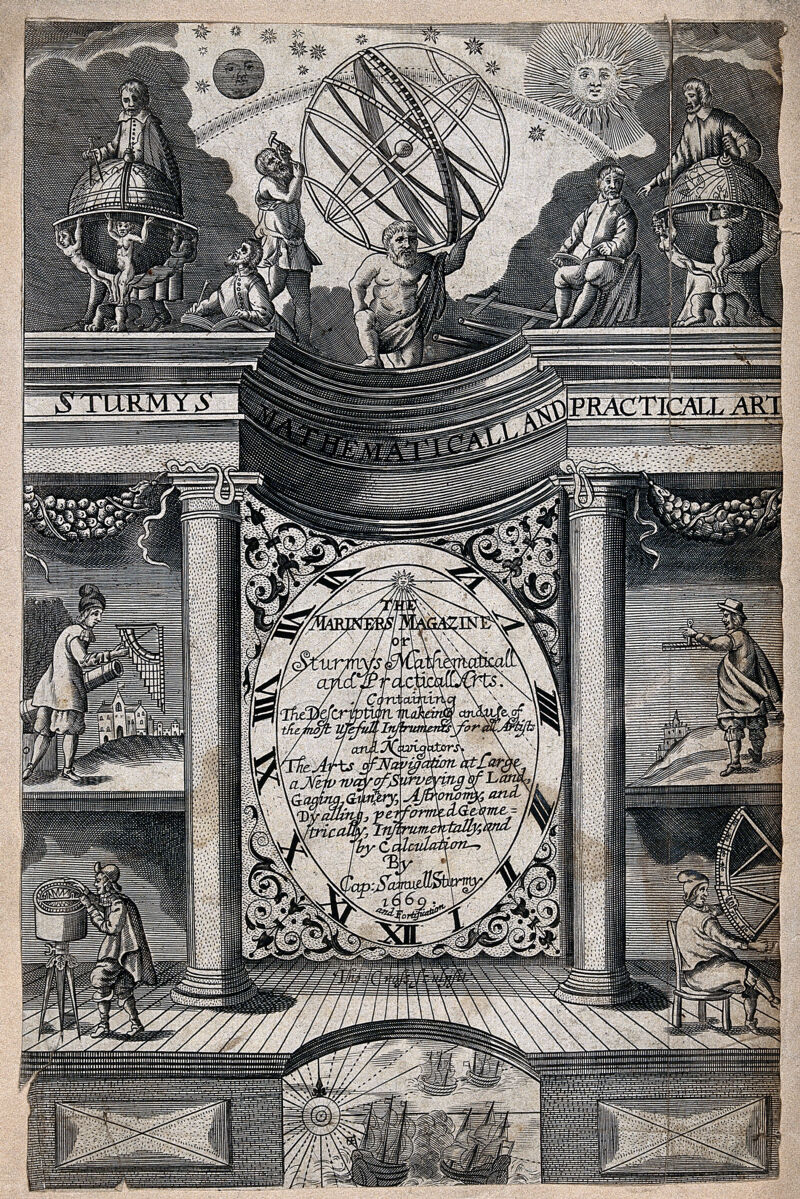 STURMYS MATHEMATICALL AND PRACTICALL ART
THE
MARINERS MAGAZINE
or
Sturmys Mathematicall
and Practicall Arts.
Containing
The Description makeing and use of
the most usefull Instruments for all Artists
and Navigators.
The Arts of Navigation at Large,
a New way of Surveying of Land,
Gaging, Gunery, Astronomy, and
Dyalling, performed Geome=
trically, Instrumentally, and
by Calculation
By
Cap: Samuell Sturmy
1669.
and Fortification
VI
VII
VIII
IX
X
XI
XII
I
II
III
IIII
V
VI